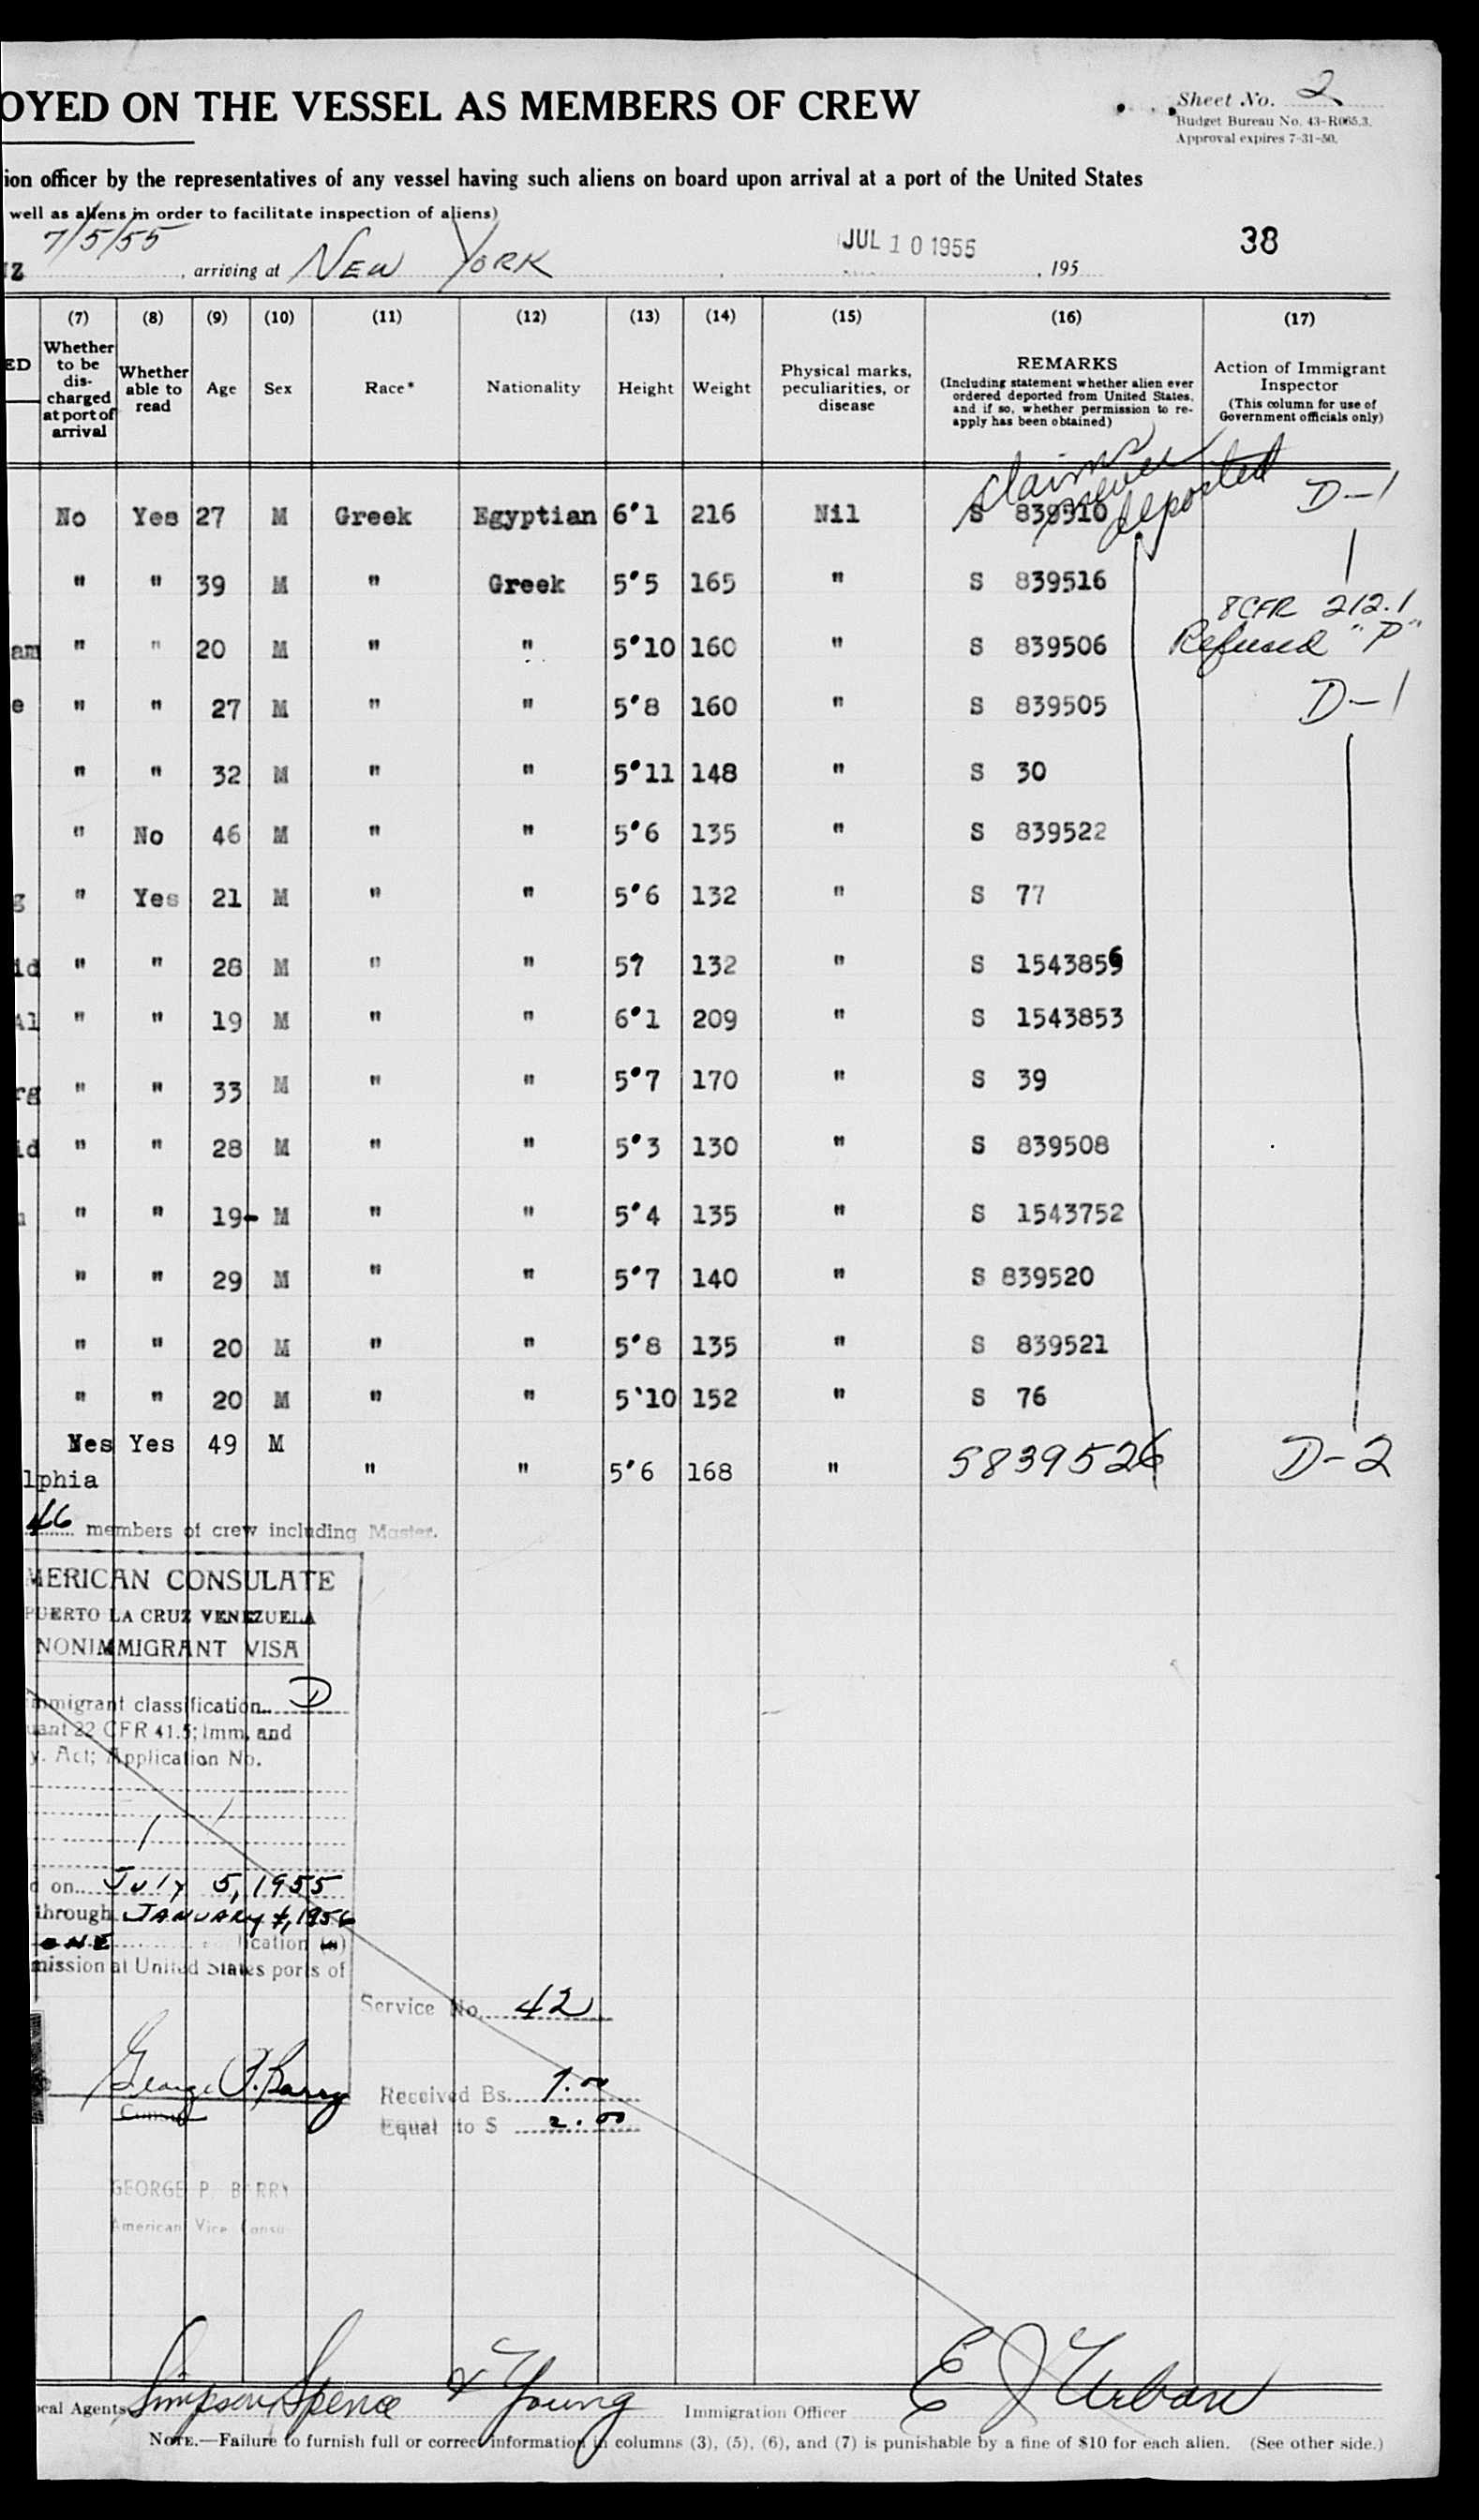 OYED ON THE VESSEL AS MEMBERS OF CREW
Sheet No. 2
Budget Bureau No. 43-R065.3.
Approval expires 7-31-50.
ion officer by the representatives of any vessel having such aliens on board upon arrival at a port of the United States
well as aliens in order to facilitate inspection of aliens)
7/5/55
JUL 10 1955
38
UZ , arriving at NEW YORK , 195
(7) (8) (9) (10) (11) (12) (13) (14) (15) (16) (17)
ED
Whether to be dis-charged at port of arrival
Whether able to read
Age
Sex
Race*
Nationality
Height
Weight
Physical marks, peculiarities, or disease
REMARKS
(Including statement whether alien ever ordered deported from United States, and if so, whether permission to re-apply has been obtained)
Action of Immigrant Inspector
(This column for use of Government officials only)
claims never deported
No Yes 27 M Greek Egyptian 6'1 216 Nil S 839510 D-1
" " 39 M " Greek 5'5 165 " S 839516
8CFR 212.1
am " " 20 M " " 5'10 160 " S 839506 Refused "P"
e " " 27 M " " 5'8 160 " S 839505 D-1
" " 32 M " " 5'11 148 " S 30
" No 46 M " " 5'6 135 " S 839522
g " Yes 21 M " " 5'6 132 " S 77
id " " 28 M " " 57 132 " S 1543856
Al " " 19 M " " 6'1 209 " S 1543853
rg " " 33 M " " 5'7 170 " S 39
id " " 28 M " " 5'3 130 " S 839508
" " 19- M " " 5'4 135 " S 1543752
" " 29 M " " 5'7 140 " S 839520
" " 20 M " " 5'8 135 " S 839521
" " 20 M " " 5'10 152 " S 76
Yes Yes 49 M
lphia " " 5'6 168 " S839526 D-2
46 members of crew including Master.
MERICAN CONSULATE
PUERTO LA CRUZ VENEZUELA
NONIMMIGRANT VISA
mmigrant classification D
uant 22 CFR 41.5; Imm. and
y. Act; Application No.
d on July 5, 1955
through JANUARY 4, 1956
ONE lication (s)
mission at United States ports of
Service No. 42
George P. Barry
Consul
Received Bs. 7.00
Equal to $ 2.00
GEORGE P. BARRY
American Vice Consu
ocal Agents Simpson, Spence & Young Immigration Officer E J Urban
NOTE.—Failure to furnish full or correct information in columns (3), (5), (6), and (7) is punishable by a fine of $10 for each alien. (See other side.)